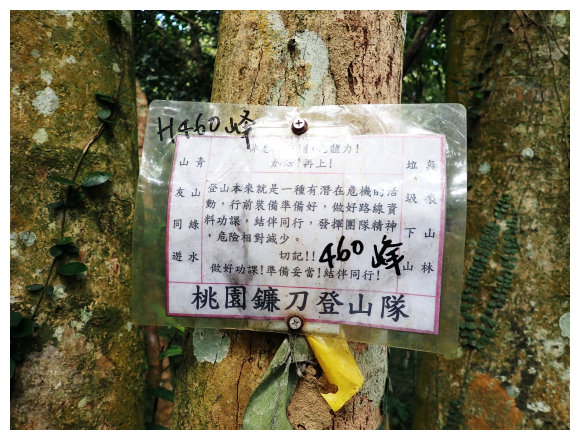 H460峰
!補充體力!
加油!再上!
青山綠水
山友同遊
登山本來就是一種有潛在危機的活
動,行前裝備準備好,做好路線資
料功課,結伴同行,發揮團隊精神
,危險相對減少。
切記!!
460峰
做好功課!準備妥當!結伴同行!
無痕山林
垃圾下山
桃園鐮刀登山隊